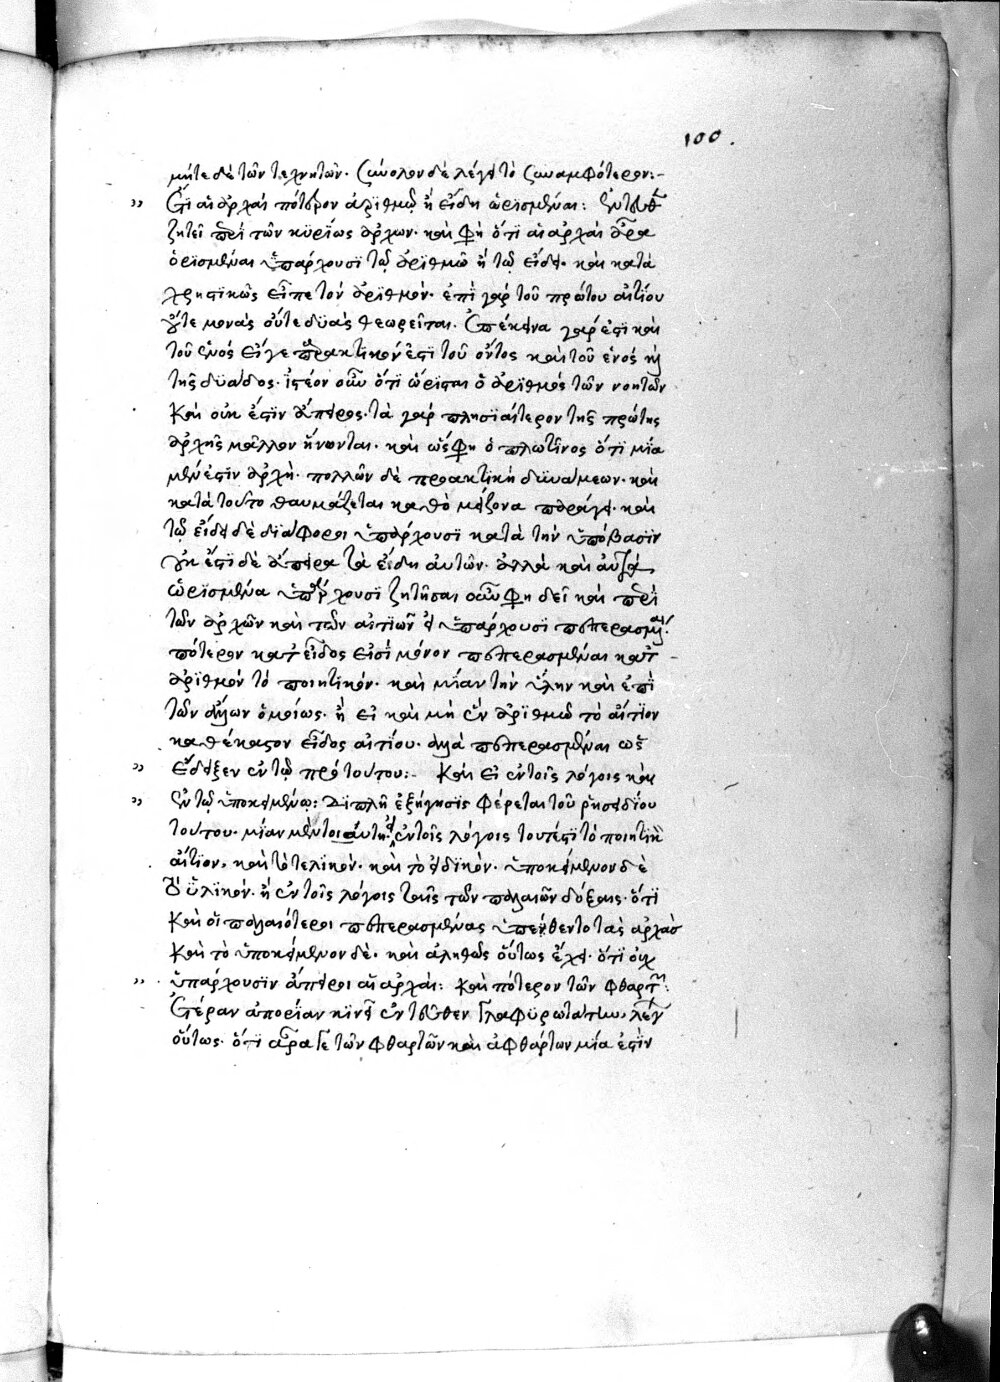 100.
μήτε δὲ τῶν τεχνητῶν· σύνολον δὲ λέγει τὸ συναμφότερον:–
Ἔτι αἱ ἀρχαὶ πότερον ἀριθμῷ ἢ εἴδη ὡρισμέναι: Ἐντεῦθεν
ζητεῖ περὶ τῶν κυρίως ἀρχων· καὶ φη ὅτι αἱ ἀρχαὶ ἆρα
ὁρισμέναι ὑπάρχουσι τῷ ἀριθμῶ ἢ τῷ εἴδει· καὶ κατα
χρηστικῶς εἶπε τὸν ἀριθμόν· ἐπὶ γὰρ τοῦ πρώτου αἰτίου
οὔτε μονὰς οὔτε δυὰς θεωρεῖται. Ἐπέκεινα γάρ ἐστι καὶ
τοῦ ἑνός εἴγε παρακτικόν ἐστι τοῦ ὄντος καὶ τοῦ ἑνός καὶ
τῆς δυάδος· ἰστέον οὖν ὅτι ὥρισται ὁ ἀριθμὸς τῶν νοητῶν
καὶ οὐκ ἔστιν ἄπειρος· τὰ γὰρ πλησιαίτερον τῆς πρώτης
ἀρχῆς μᾶλλον ἥνωνται· καὶ ὥς φη ὁ πλωτῖνος ὅτι μία
μέν ἐστιν ἀρχὴ· πολλῶν δὲ προακτικὴ δυνάμεων· καὶ
κατὰ τοῦτο θαυμάζεται καθὸ μείζονα παράγει· καὶ
τῷ εἴδει δὲ διάφοροι ὑπάρχουσι κατὰ τὴν ὑπόβασιν
οὐκ ἔστι δὲ ἄπειρα τὰ εἴδη αὐτῶν· ἀλλὰ καὶ αὐτὰ
ὡρισμένα ὑπάρχουσι ζητῆσαι οὖν φη δεῖ καὶ περὶ
τῶν ἀρχῶν καὶ τῶν αἰτιῶν εἰ ὑπάρχουσι πεπερασμέναι·
πότερον κατ εἶδος εἰσὶ μόνον πεπερασμέναι κατ
ἀριθμόν τὸ ποιητικόν· καὶ μίαν τὴν ὕλην καὶ ἐπὶ
τῶν ἄλλων ὁμοίως· ἢ εἰ καὶ μὴ ἓν ἀριθμῶ τὸ αἴτιον
καθέκαστον εἶδος αἰτίου· ἀλλὰ πεπερασμέναι ὡς
ἔδειξεν ἐν τῷ πρὸ τούτου:– Καὶ εἰ ἐν τοῖς λόγοις καὶ
ἐν τῷ ὑποκειμένῳ: Διπλῆ ἐξήγησις φέρεται τοῦ ῥησειδίου
τούτου· μίαν μέντοι αὐτὴ· ἐν τοῖς λόγοις τουτέστι τὸ ποιητικὸν
αἴτιον, καὶ τὸ τελικόν· καὶ τὸ εἰδικόν· ὑποκείμενον δὲ
τὸ ὑλικόν· ἢ ἐν τοῖς λόγοις ταῖς τῶν παλαιῶν δόξαις· ὅτι
καὶ οἱ παλαιότεροι πεπερασμένας ὑπέθεντο τὰς ἀρχὰς
καὶ τὸ ὑποκείμενον δὲ· καὶ ἀληθῶς οὕτως ἔχει· ὅτι οὐχ
ὑπάρχουσιν ἄπειροι αἱ ἀρχαὶ: Καὶ πότερον τῶν φθαρτῶν:
Ἑτέραν ἀπορίαν κινεῖ ἐντεῦθεν γλαφυρωτάτην, λέγει
οὕτως· ὅτι ἆρα γε τῶν φθαρτῶν καὶ ἀφθάρτων μία ἐστὶν